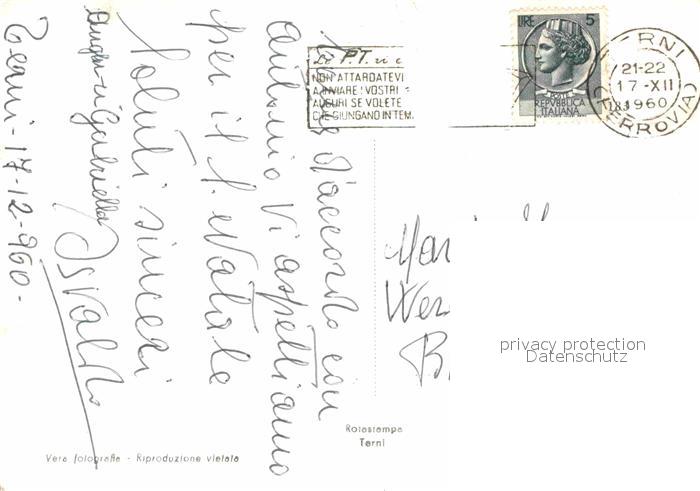 D'accordo con
Antonio Vi aspettiamo
per il S. Natale
Saluti sinceri
Osvaldo
Auguri Gabriella
Terni - 17-12-960-
Le P.T. vi
NON ATTARDATEVI
A INVIARE I VOSTRI
AUGURI SE VOLETE
CHE GIUNGANO IN TEM
LIRE 5
POSTE
REPVBBLICA
ITALIANA
RNI
21-22
17-XII
1960
(FERROVIA)
Mar
Wer
B
privacy protection
Datenschutz
Rotostampa
Terni
Vera fotografia - Riproduzione vietata